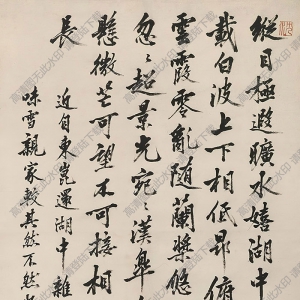 纵目極遐曠水嬉湖中
載白波上下相低昂俯
雲霞零亂随蘭槳悠
忽〻超景光宛〻漢皋
懸微芒可望不可接相
長
近自東崑還湖中雜
味雪親家教其然不然